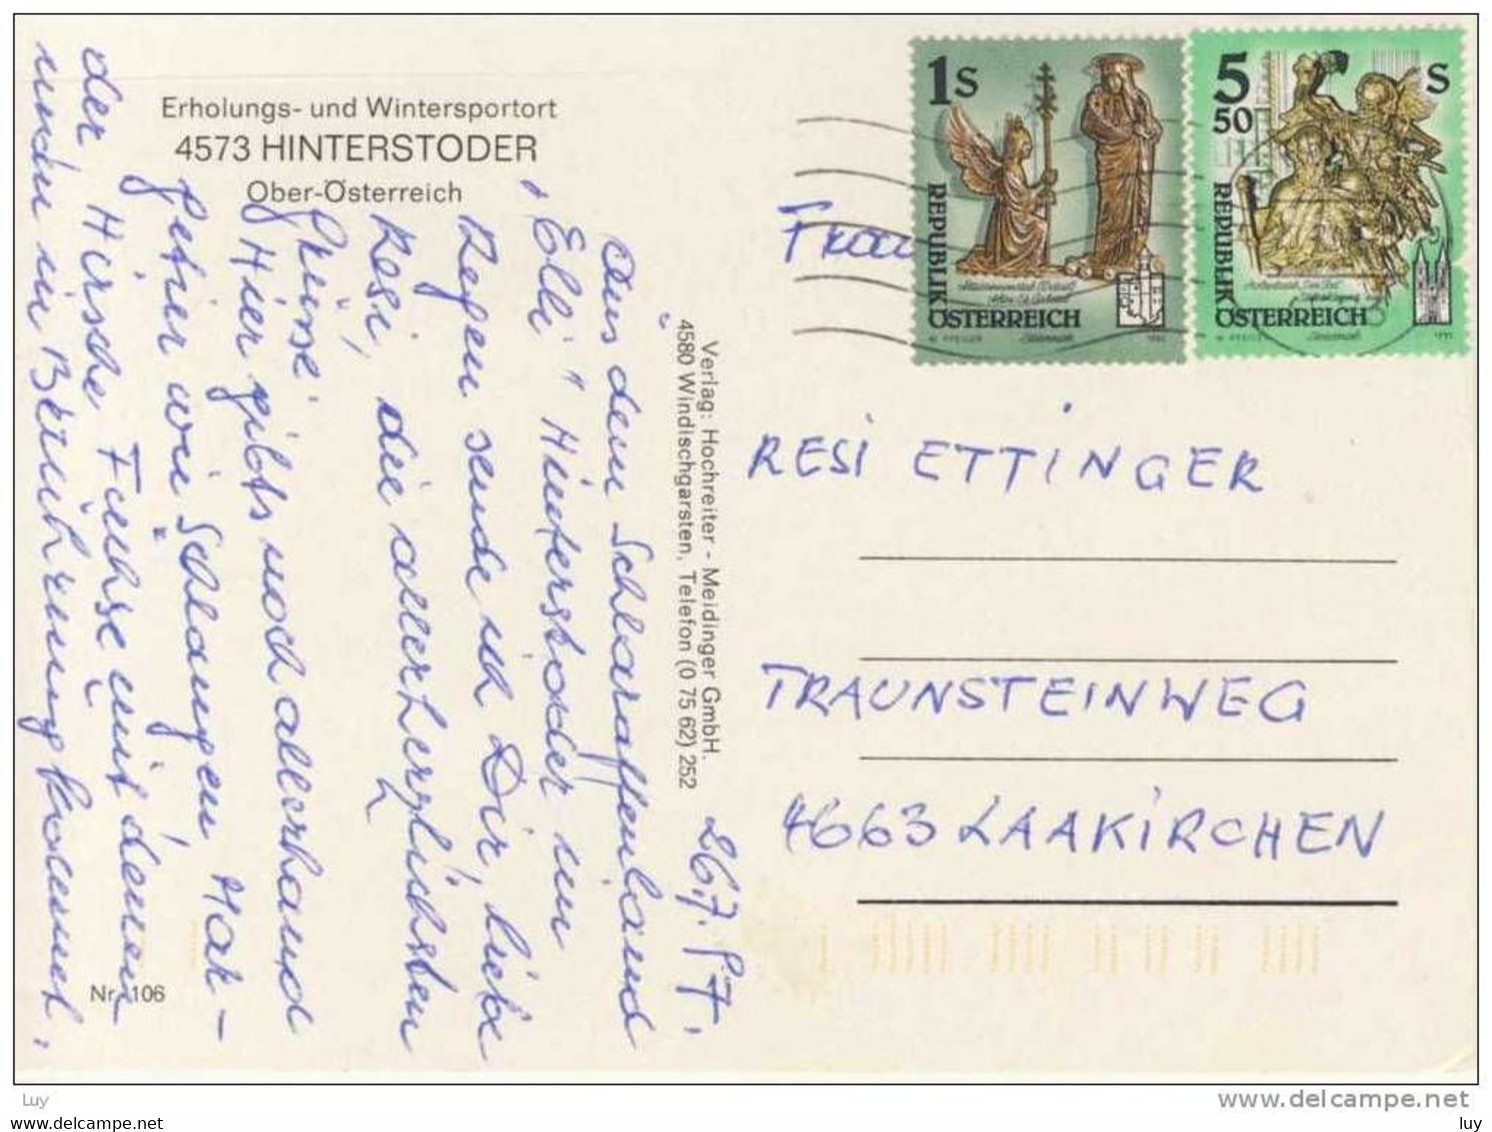 Erholungs- und Wintersportort
4573 HINTERSTODER
Ober-Österreich
26.7.97.
Aus dem Schlaraffenland
"Elli" Hinterstoder im
Regen sende ich Dir, liebe
Resi, die allerherzlichsten
Grüsse!
Hier gibts noch allerhand
Getier wie Schlangen, Mar-
der Hirsche Füchse mit denen
man in Berührung kommt.
Nr. 106
Verlag: Hochreiter - Meidinger GmbH.
4580 Windischgarsten, Telefon (0 75 62) 252
1 S
REPUBLIK
ÖSTERREICH
5 50 S
REPUBLIK
ÖSTERREICH
Frau
RESI ETTINGER
TRAUNSTEINWEG
4663 LAAKIRCHEN
Luy
www.delcampe.net
www.delcampe.net
luy